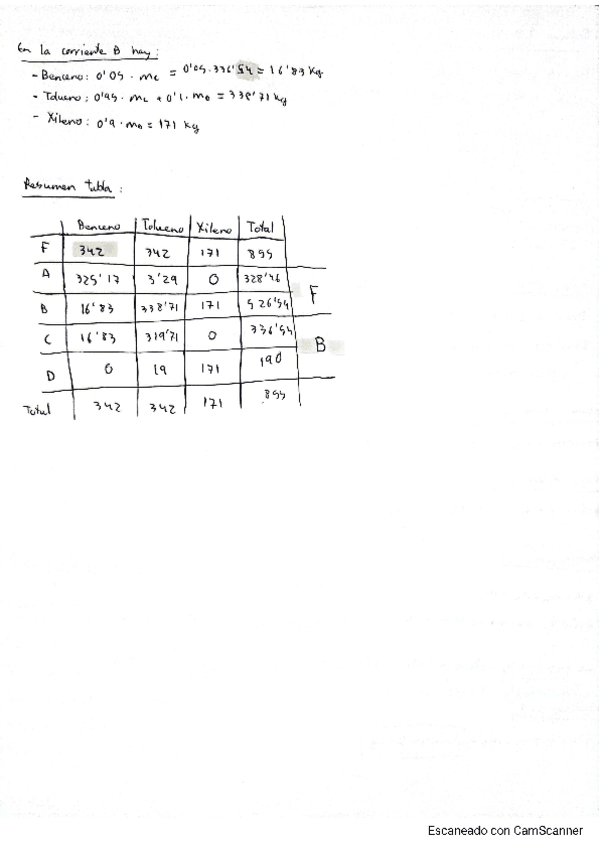 En la corriente B hay:
- Benceno: 0'05 · mc = 0'05 · 336'54 = 16'83 Kg
- Tolueno: 0'95 · mc + 0'1 · mD = 338'71 Kg
- Xileno: 0'9 · mD = 171 Kg
Resumen tabla:
Benceno Tolueno Xileno Total
F 342 342 171 855
A 325'17 3'29 0 328'46
F
B 16'83 338'71 171 526'54
C 16'83 319'71 0 336'54
B
D 0 19 171 190
Total 342 342 171 855
Escaneado con CamScanner